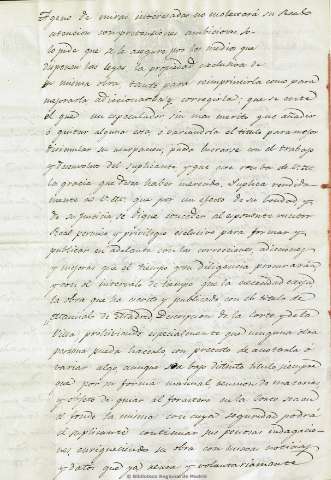 Ageno de miras interesadas no molestará su Real
atencion con pretensiones ambiciosas; so-
lo pide que se le asegure por los medios que
disponen las leyes la propiedad exclusiva de
su misma obra tanto para reimprimirla como para
mejorarla adicionarla y corregirla; que se evite
el que un especulador sin mas merito que añadir
ó quitar alguna cosa, ó variandola el titulo para mejor
disimular su usurpacion, pueda lucrarse con el trabajo
y desvelos del suplicante y que este reciba de V.M.
la gracia que desea haber merecido. Suplica rendida-
mente a V.M. que por un efecto de su bondad y
de su justicia se digne conceder al esponente su co-
Real permiso y privilegio esclusivo para formar y
publicar en adelante con las correcciones, adiciones
y mejoras que el tiempo y su diligencia proporcionarán
y con el intervalo de tiempo que la necesidad exija
la obra que ha escrito y publicado con el titulo de
Manual de Madrid Descripcion de la Corte y de la
Villa prohibiendo especialmente que ninguna otra
persona pueda hacerlo, con pretesto de aumentarla ó
variar algo, aunque sea bajo distinto titulo, siempre
que por su forma manual reunion de materias
y objeto de guiar al forastero en la Corte sea en
el fondo la misma: con cuya seguridad podrá
el suplicante continuar sus penosas indagacio-
nes enriqueciendo su obra con buenas noticias
y datos que ya severa y voluntariamente
© Biblioteca Regional de Madrid